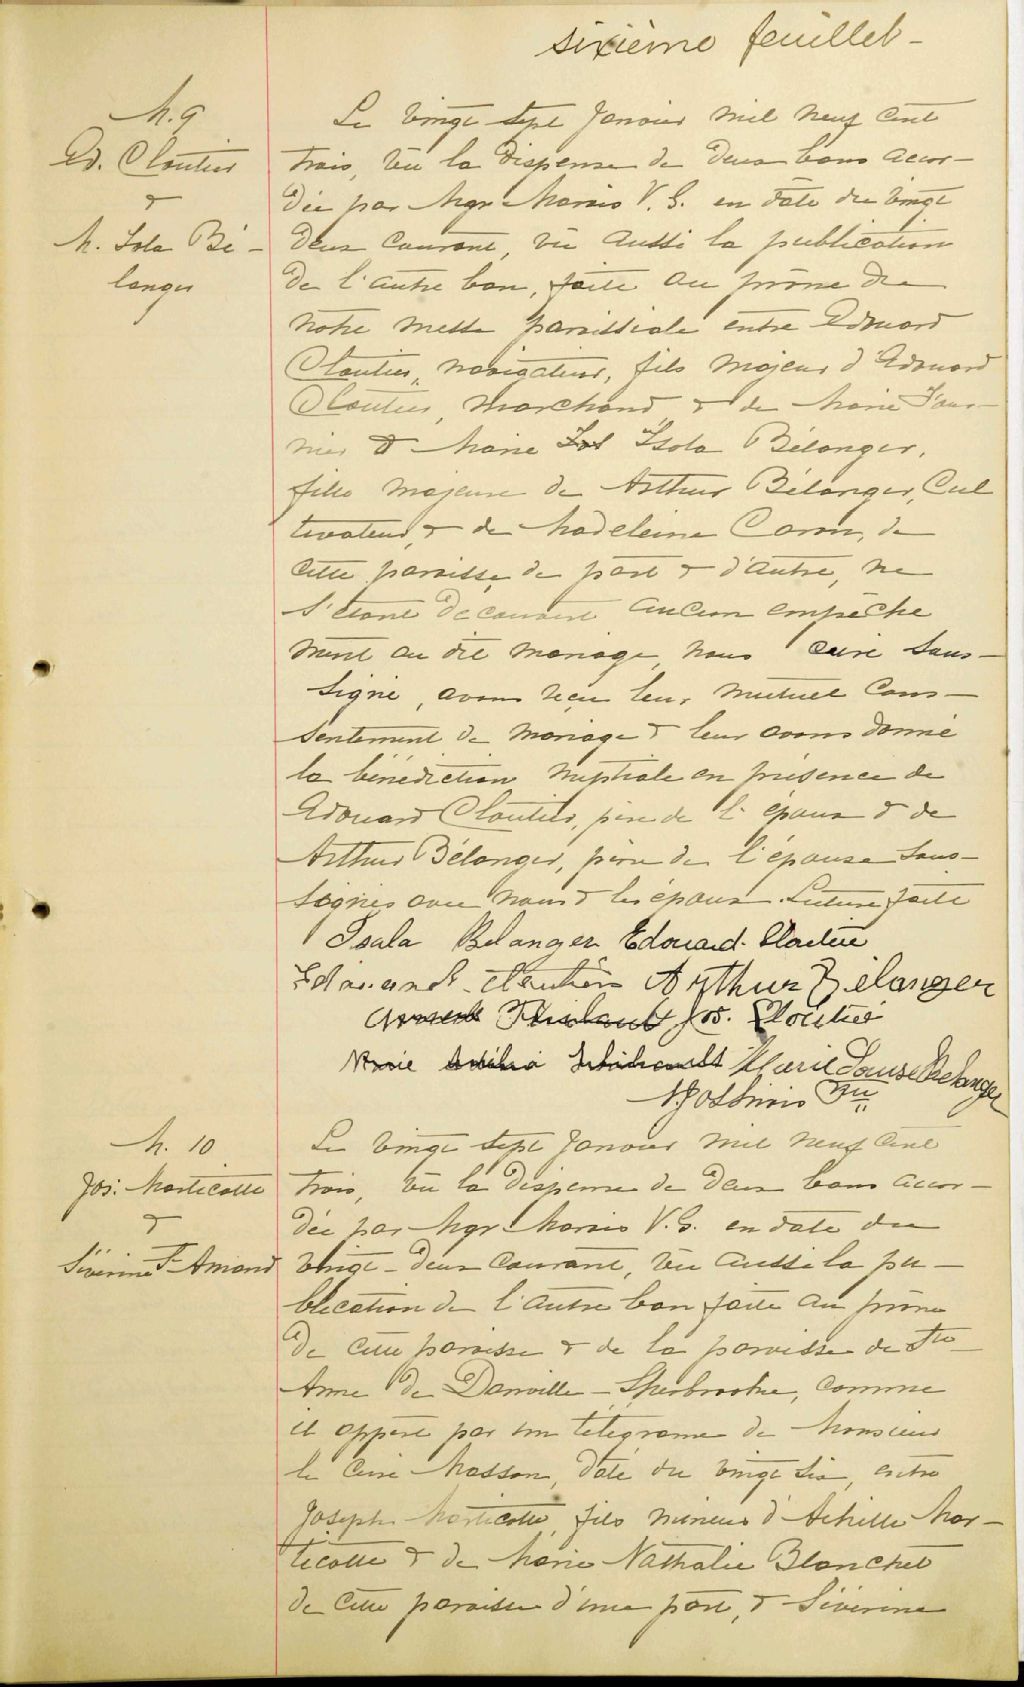 sixième feuillet -
M. 9
Ed. Cloutier
&
M. Isola Bé-
langer
Le vingt sept Janvier mil neuf cent
trois, vu la dispense de deux bans accor-
dée par Mgr Marois V. G. en date du vingt
deux courant, vu aussi la publication
de l'autre ban, faite au prône de
notre messe paroissiale entre Edouard
Cloutier, navigateur, fils majeur d'Edouard
Cloutier, marchand & de Marie Four-
nier & Marie Isola Bélanger,
fille majeure de Arthur Bélanger, Cul
tivateur, & de Madeleine Caron, de
cette paroisse, de part & d'autre, ne
s'étant découvert aucun empêche
ment au dit mariage, nous curé sous-
signé, avons reçu leur mutuel cons-
sentement de mariage & leur avons donné
la bénédiction nuptiale en présence de
Edouard Cloutier, père de l'époux & de
Arthur Bélanger, père de l'épouse sous-
signés avec nous & les époux. Lecture faite
Isala Belanger Edouard Cloutier
Edouard Cloutier Arthur Bélanger
Thibault Jos. Cloutier
Marie Marie Louise Bélanger
Ptre
M. 10
Jos. Marticotte
&
Séverine St-Amand
Le vingt sept Janvier mil neuf cent
trois, vu la dispense de deux bans accor-
dée par Mgr Marois V. G. en date du
vingt-deux courant, vu aussi la pu-
blication de l'autre ban faite au prône
de cette paroisse & de la paroisse de Ste
Anne de Danville-Sherbrooke, comme
il appert par un télégrame de Monsieur
le Curé Masson, daté du vingt six, entre
Joseph Marticotte, fils mineur d'Achille Mar-
ticotte & de Marie Nathalie Blanchet
de cette paroisse d'une part, & Séverine